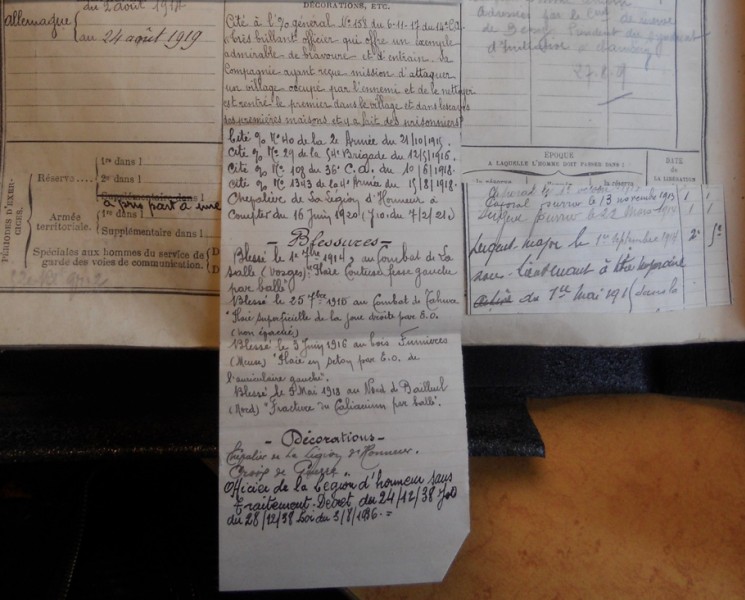 du 2 août 1914
allemagne
au 24 août 1919
DÉCORATIONS, ETC.
Cité à l'% général N° 158 du 6-11-17 du 14e C.A.
très brillant officier qui offre un exemple
admirable de bravoure et d'entrain. Sa
Compagnie ayant reçu mission d'attaquer
un village occupé par l'ennemi et de le nettoyer
est rentré le premier dans le village et dans les caves
premières maisons et y a fait des prisonniers
Cité % N° 40 de la 2e Armée du 21/10/1915.
Cité % N° 29 de la 54e Brigade du 12/5/1916.
Cité % N° 108 du 36e C.A. du 10/6/1918.
Cité % N° 1343 de la 4e Armée du 15/8/1918.
Chevalier de la Légion d'Honneur à
Compter du 16 juin 1920 (J.O. du 7/2/21)
- Blessures -
Blessé le 1e 7bre 1914, au Combat de La
Salle (Vosges) "Plaie Contuse fesse gauche
par balle"
Blessé le 25 7bre 1915 au Combat de Tahure
"Plaie superficielle de la joue droite par E.O.
(non évacué)
Blessé le 3 Juin 1916 au bois Fumières
(Meuse) "Plaie en Séton par E.O. de
l'auriculaire gauche".
Blessé le 5 Mai 1918 au Nord de Bailleul
(Nord) "Fracture du Calcanéum par balle".
- Décorations -
Chevalier de la Légion d'Honneur.
Croix de Guerre
Officier de la Légion d'honneur sans
traitement. Décret du 24/12/38 J.O
du 28/12/38 Loi du 3/8/1936.=
27.8.
ÉPOQUE
À LAQUELLE L'HOMME DOIT PASSER DANS :
DATE
DE
LA LIBÉRATION
la réserve
Caporal fourrier le 13 novembre 1913
Sergent fourrier le 22 Mars 1914
Sergent major le 1er Septembre 1914
sous-lieutenant à titre temporaire
du 1er Mai 191
dans la
PÉRIODES D'EXERCICES.
Réserve
1re dans l
2e dans l
Supplémentaire dans l
a pris part à une
Armée
territoriale.
1re dans l
Supplémentaire dans l
Spéciales aux hommes du service de
garde des voies de communication.